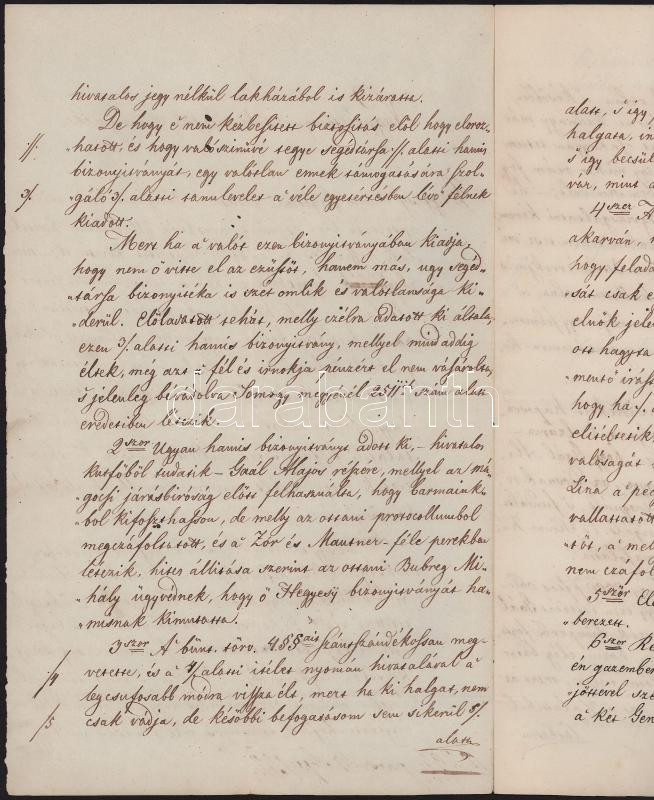 hivatalos jegy nélkül lakházából is kizáratta.
De hogy é nem kézbesített biztosítás elöl hogy eloroz-
„hatott, és hogy valószinüvé tegye segédtársa 2/. alatti hamis
1/.
bizonyitványát, egy valótlan ennek támogatására szol-
„gáló 3/. alatti tanulevelet a' véle egyesértésben lévő félnek
3/.
kiadott.
Mert ha a' valót ezen bizonyitványában kiadja,
hogy nem ő vitte el az ezüstöt, hanem más, ugy segéd-
„társa bizonyitéka is szét omlik és valótlansága ki-
„derül. Előladatott tehát, melly czélra adatott ki általa,
ezen 3/. alatti hamis bizonyitvány, mellyel mind addig
éltek, meg azt a' fél és irnokja pénzért el nem vásárolta,
s jelenleg bévádolva Somogy megyénél szám alatt
eredetiben létezik.
2szor Ugyan hamis bizonyitványt adott ki, – hivatalos
kutföböl tudatik – Gaál Alajos részére, mellyel az má-
„gocsi járásbiróság előtt felhasználta, hogy barmaink-
„ból kifoszthasson, de melly az ottani protocollumból
megczáfoltatott, és a' Zór és Mautner-féle perekben
létezik, hites állitása szerint az ottani Bubreg Mi-
„hály ügyvédnek, hogy ő Hegyesÿ bizonyitványát ha-
„misnak kimutatta.
3szor A' bünt. törv. 4. §§ais szántszándékossan meg-
vetette, és a' 4/. alatti itélet nyomán hivatalával a'
/4
legcsufosabb módra vissza élt, mert ha ki halgat, nem
csak vádja, de későbbi befogatásom sem sikerül 5/.
/5
alatt
alatt, s' így
halgata, in
s' így becsül
vár, mint a
4szer
akarván,
hogy felada
sát csak e
elnök jele
ott hagyta
mentő irás
hogy ha
elitéltetik
valóságát
Lina a' péc
vallattatott
„tőt, a' mel
nem czáfol
5ször El
„berezett.
6szor Re
én gazember
„jöttével szé
a' két Gen
darabanth